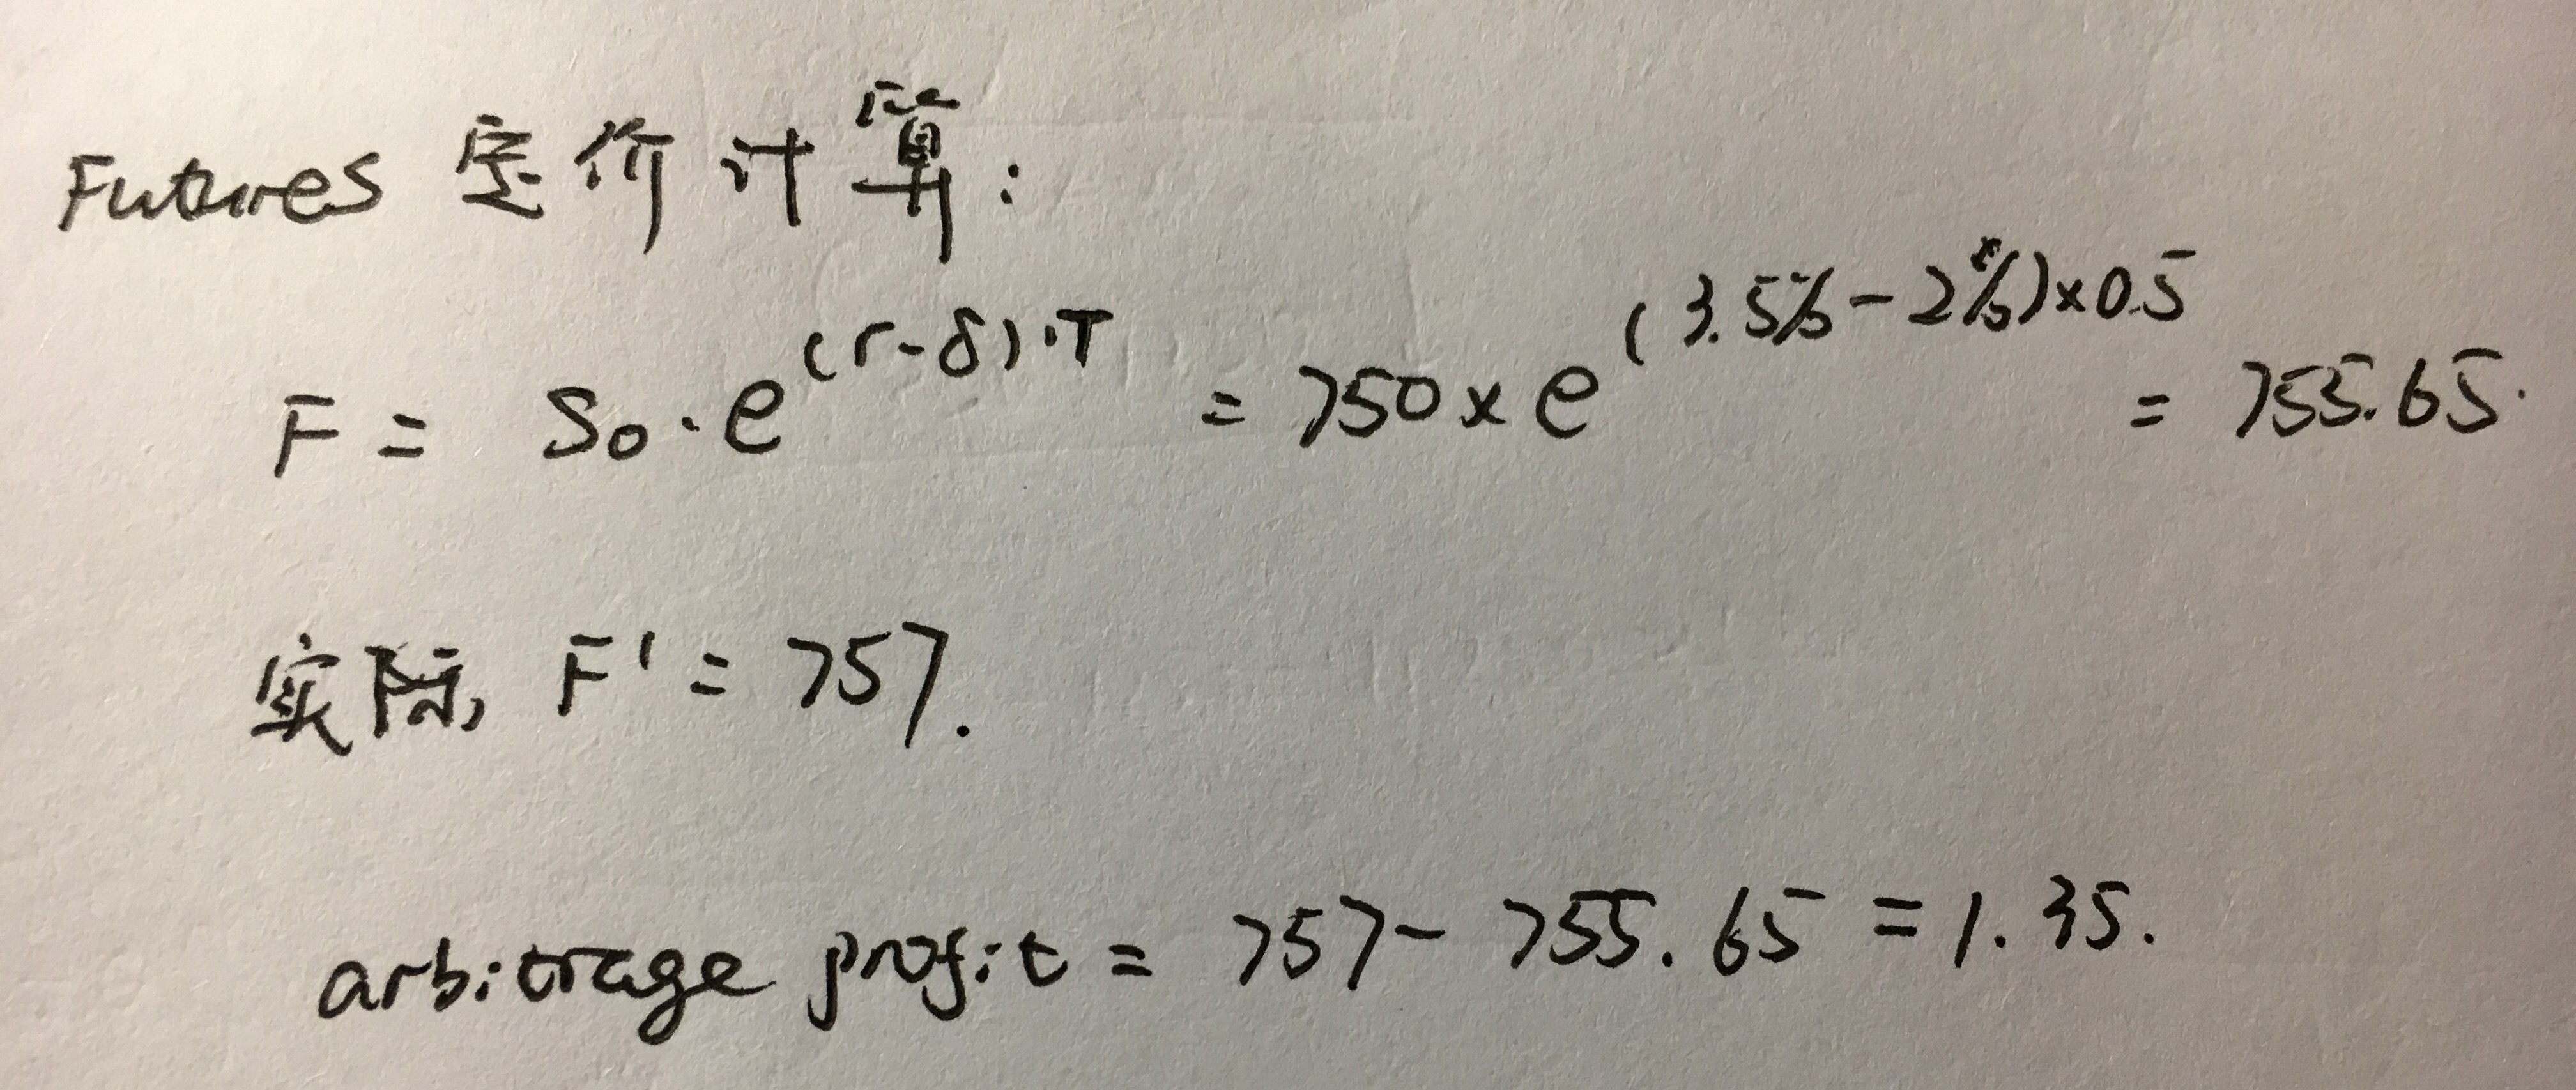 Futures 定价计算:
F = S₀·e^(r-δ)·T = 750×e^(3.5%-2%)×0.5 = 755.65.
实际, F' = 757.
arbitrage profit = 757- 755.65 = 1.35.